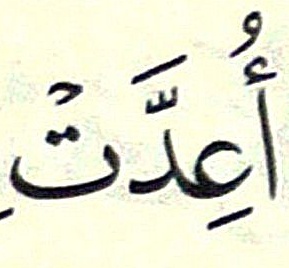 أُعِدَّتۡ